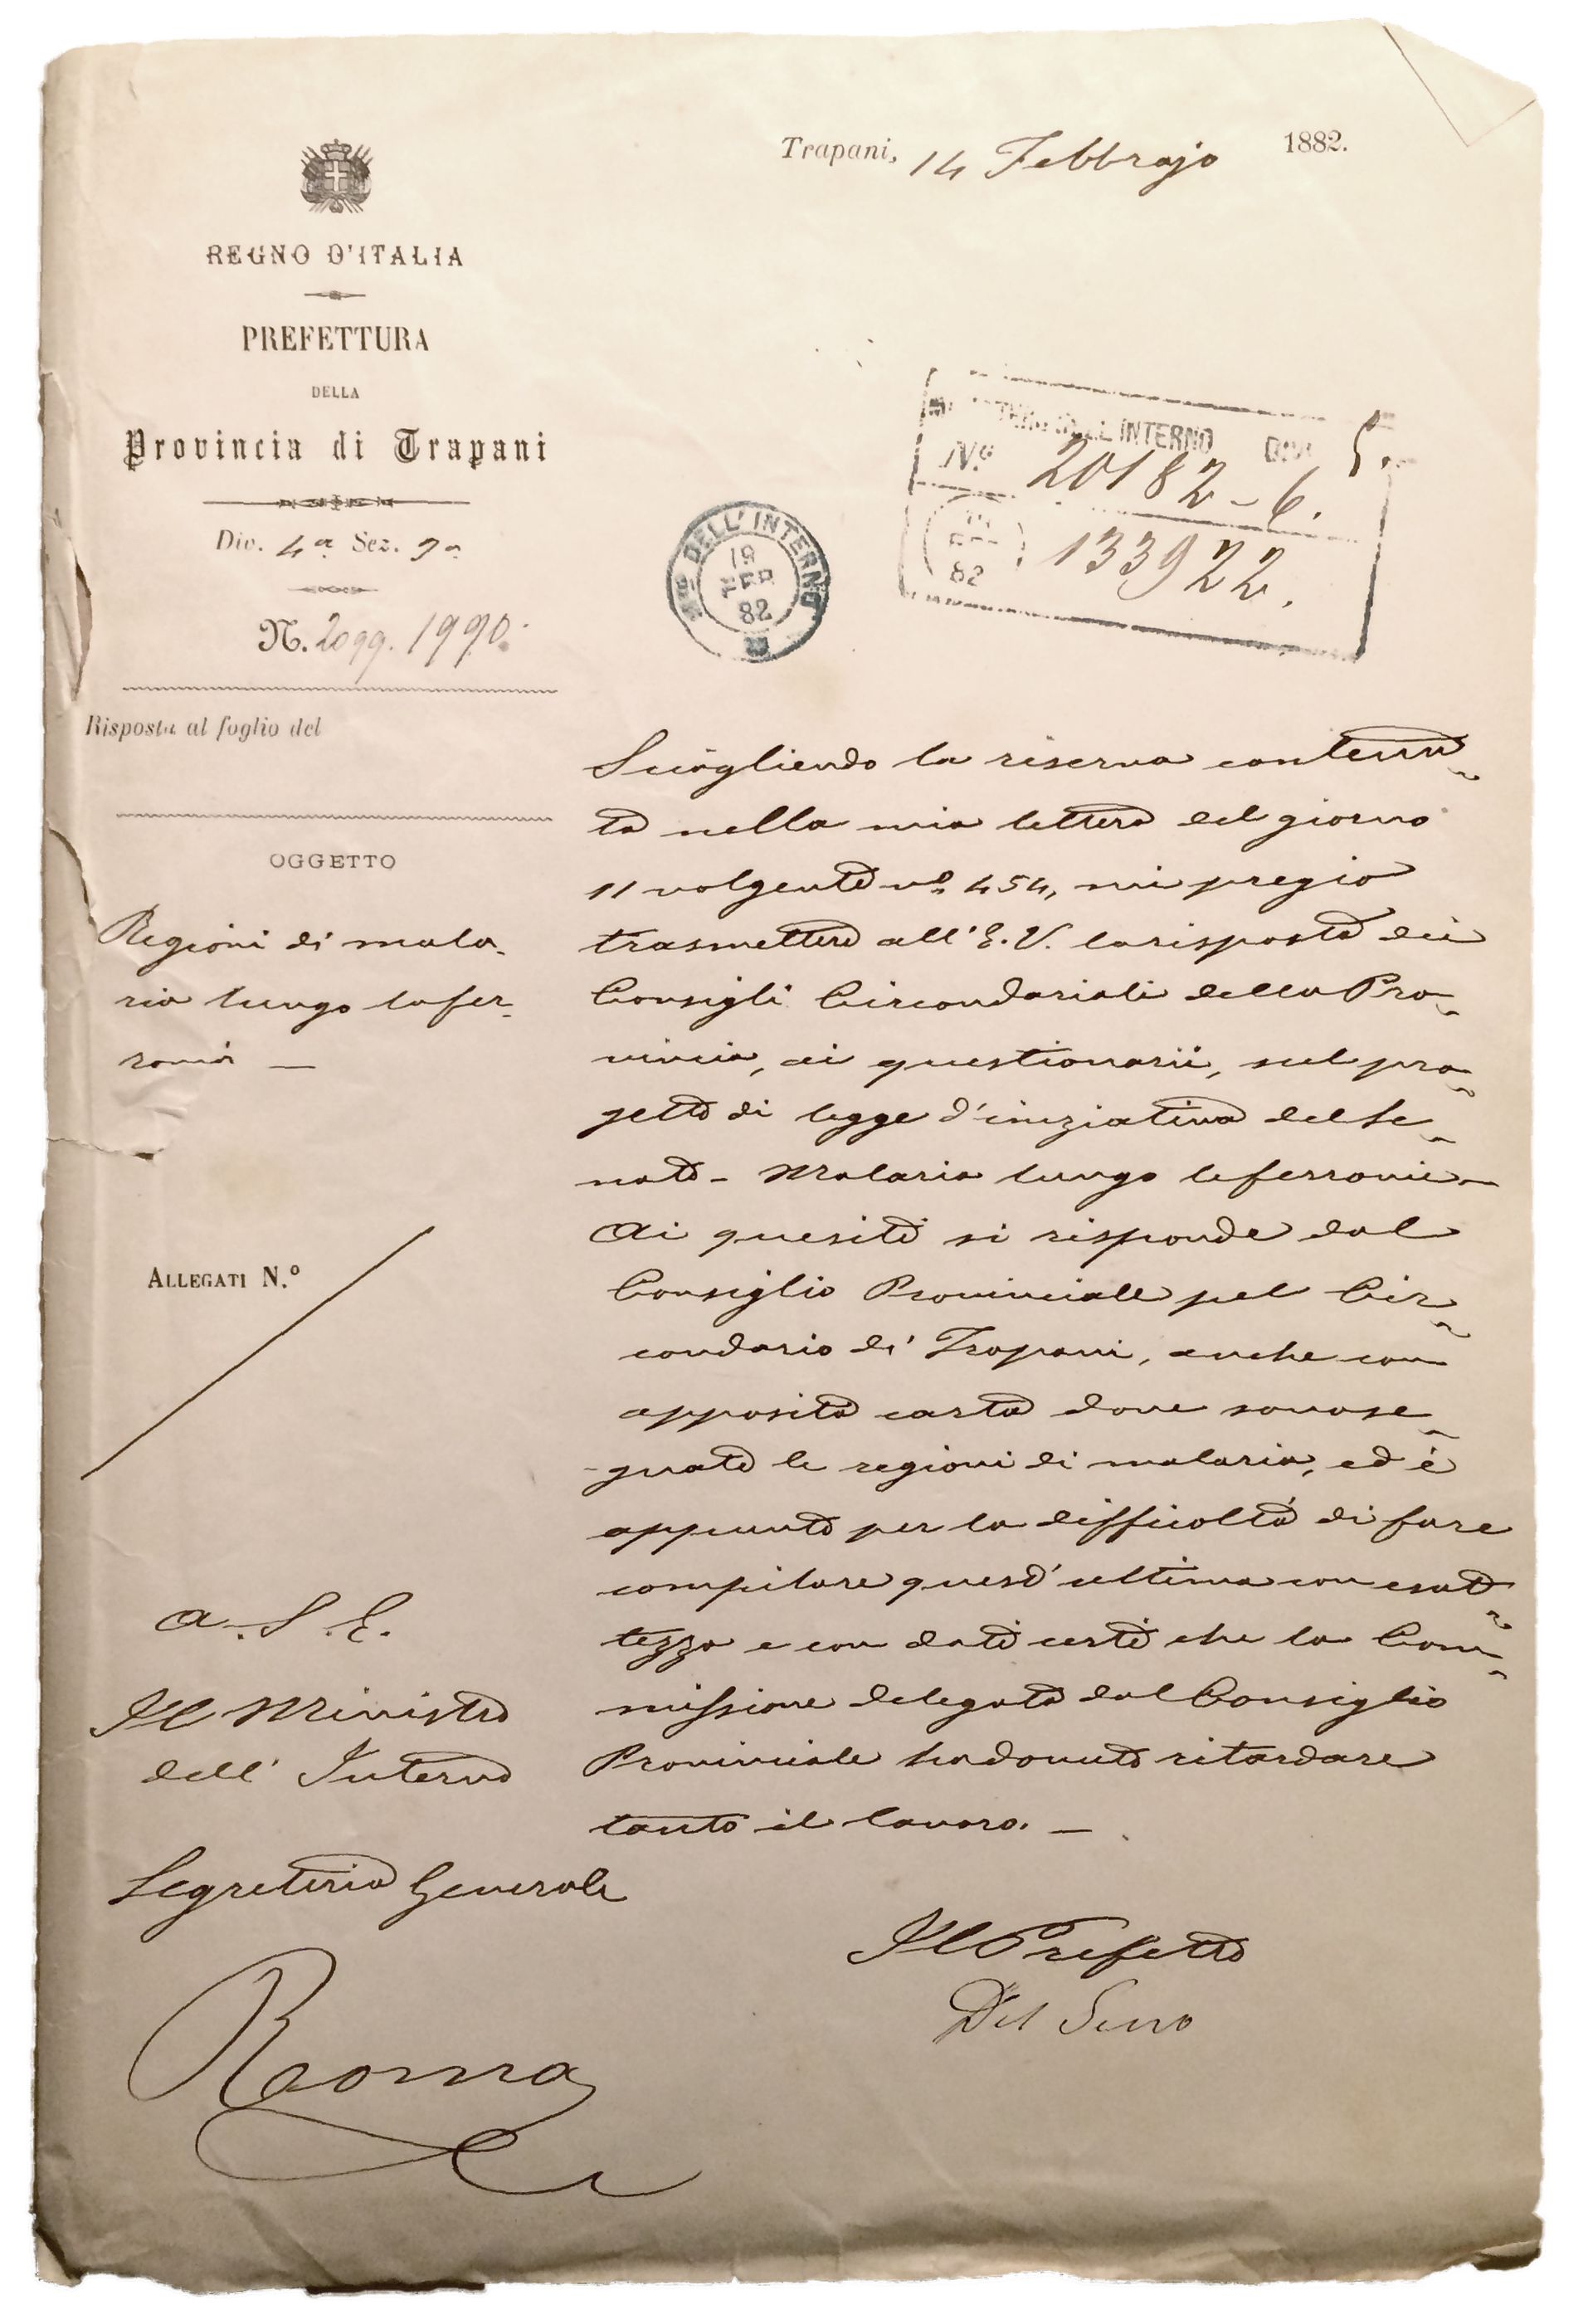 Trapani, 14 Febbrajo 1882.
REGNO D'ITALIA
PREFETTURA
DELLA
Provincia di Trapani
Div. 4a Sez.
N. 2099. 1990.
Risposta al foglio del
OGGETTO
Regioni di mala-
ria lungo la fer-
rovia —
ALLEGATI N.º
A. S. E.
Il Ministro
dell' Interno
Segreteria Generale
Roma
DELL' INTERNO
19
FEB
82
DELL'INTERNO DIV. 5.
Nº 20182-6.
82
133922.
Sciogliendo la riserva contenu-
ta nella mia lettera del giorno
11 volgente nº 454, mi pregio
trasmettere all' E. V. la risposta dei
Consigli Circondariali della Pro-
vincia, ai questionarii, sul pro-
getto di legge d'iniziativa del Se-
nato - Malaria lungo le ferrovie -
Ai quesiti si risponde dal
Consiglio Provinciale pel Cir-
condario di Trapani, anche con
apposita carta dove sono se-
gnate le regioni di malaria, ed è
appunto per la difficoltà di fare
compilare quest'ultima con esat-
tezza e con dati certi che la Com-
missione delegata dal Consiglio
Provinciale ha dovuto ritardare
tanto il lavoro. —
Il Prefetto